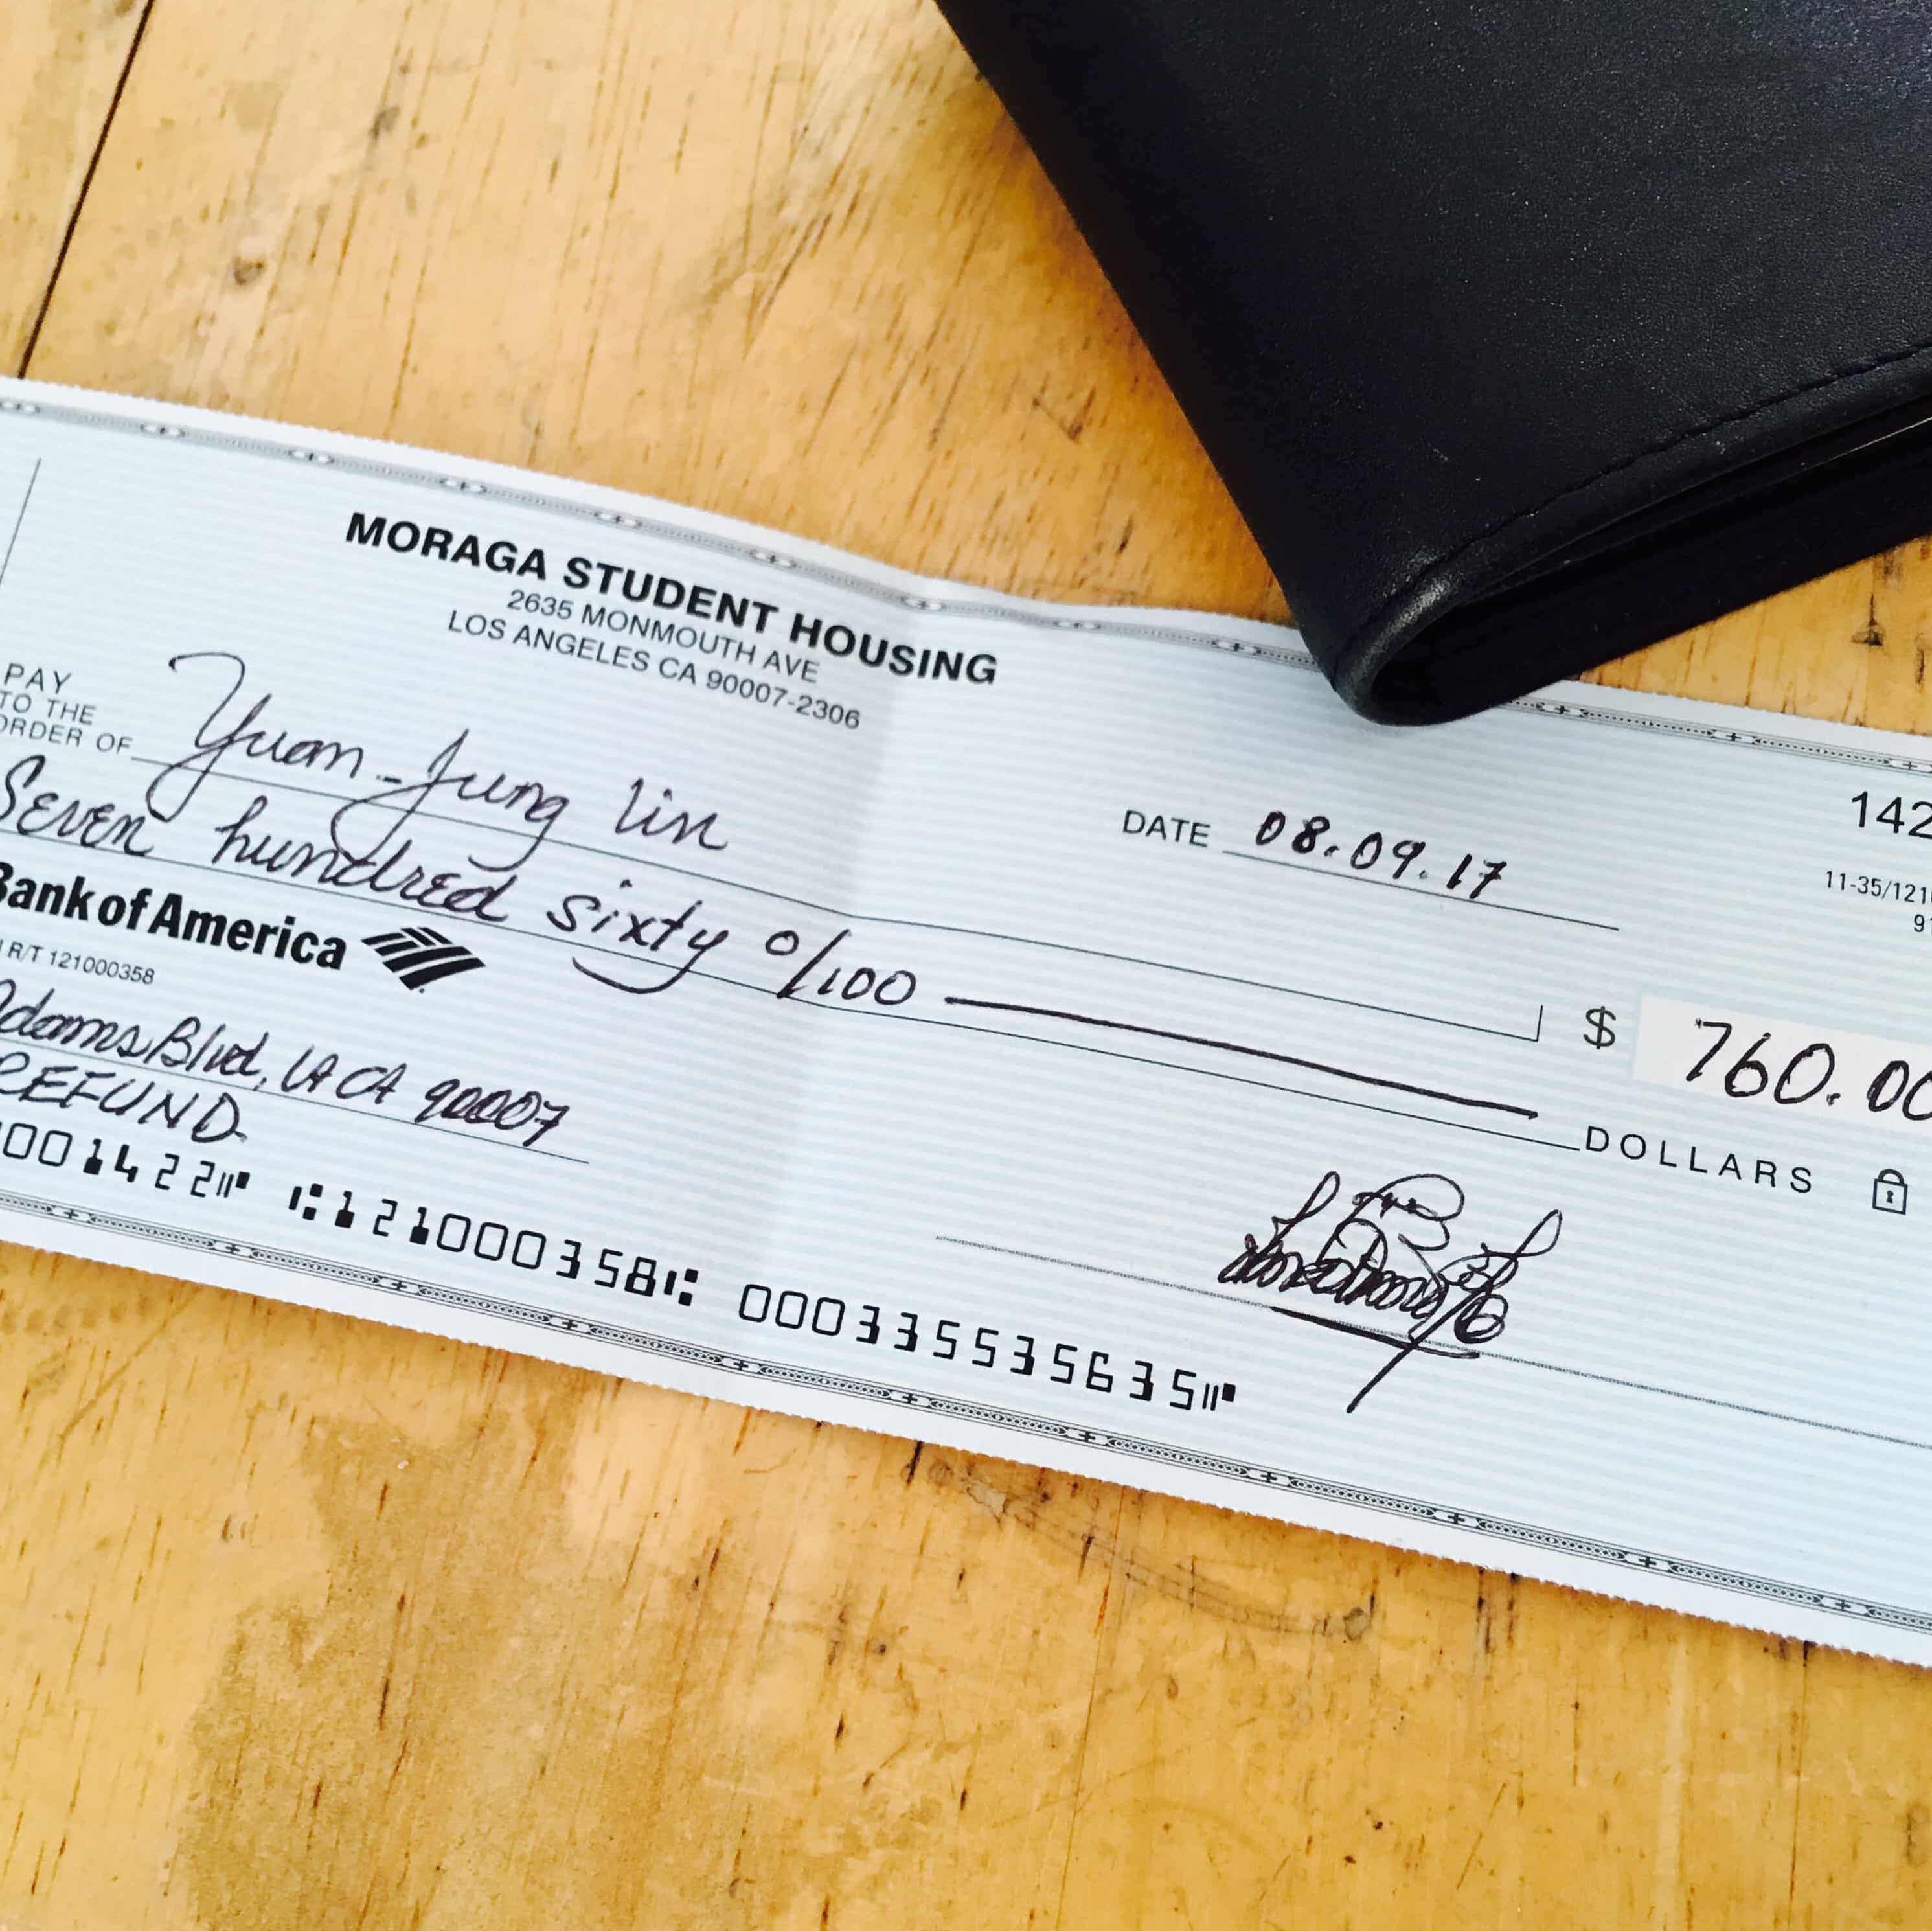 MORAGA STUDENT HOUSING
2635 MONMOUTH AVE
LOS ANGELES CA 90007-2306
142
11-35/121
91
DATE 08.09.17
PAY
TO THE
ORDER OF Yuan-Jung Lin
$ 760.00
Seven hundred sixty 0/100 DOLLARS
Bank of America
R/T 121000358
Adams Blvd, LA CA 90007
REFUND
001422 121000358 000335535635